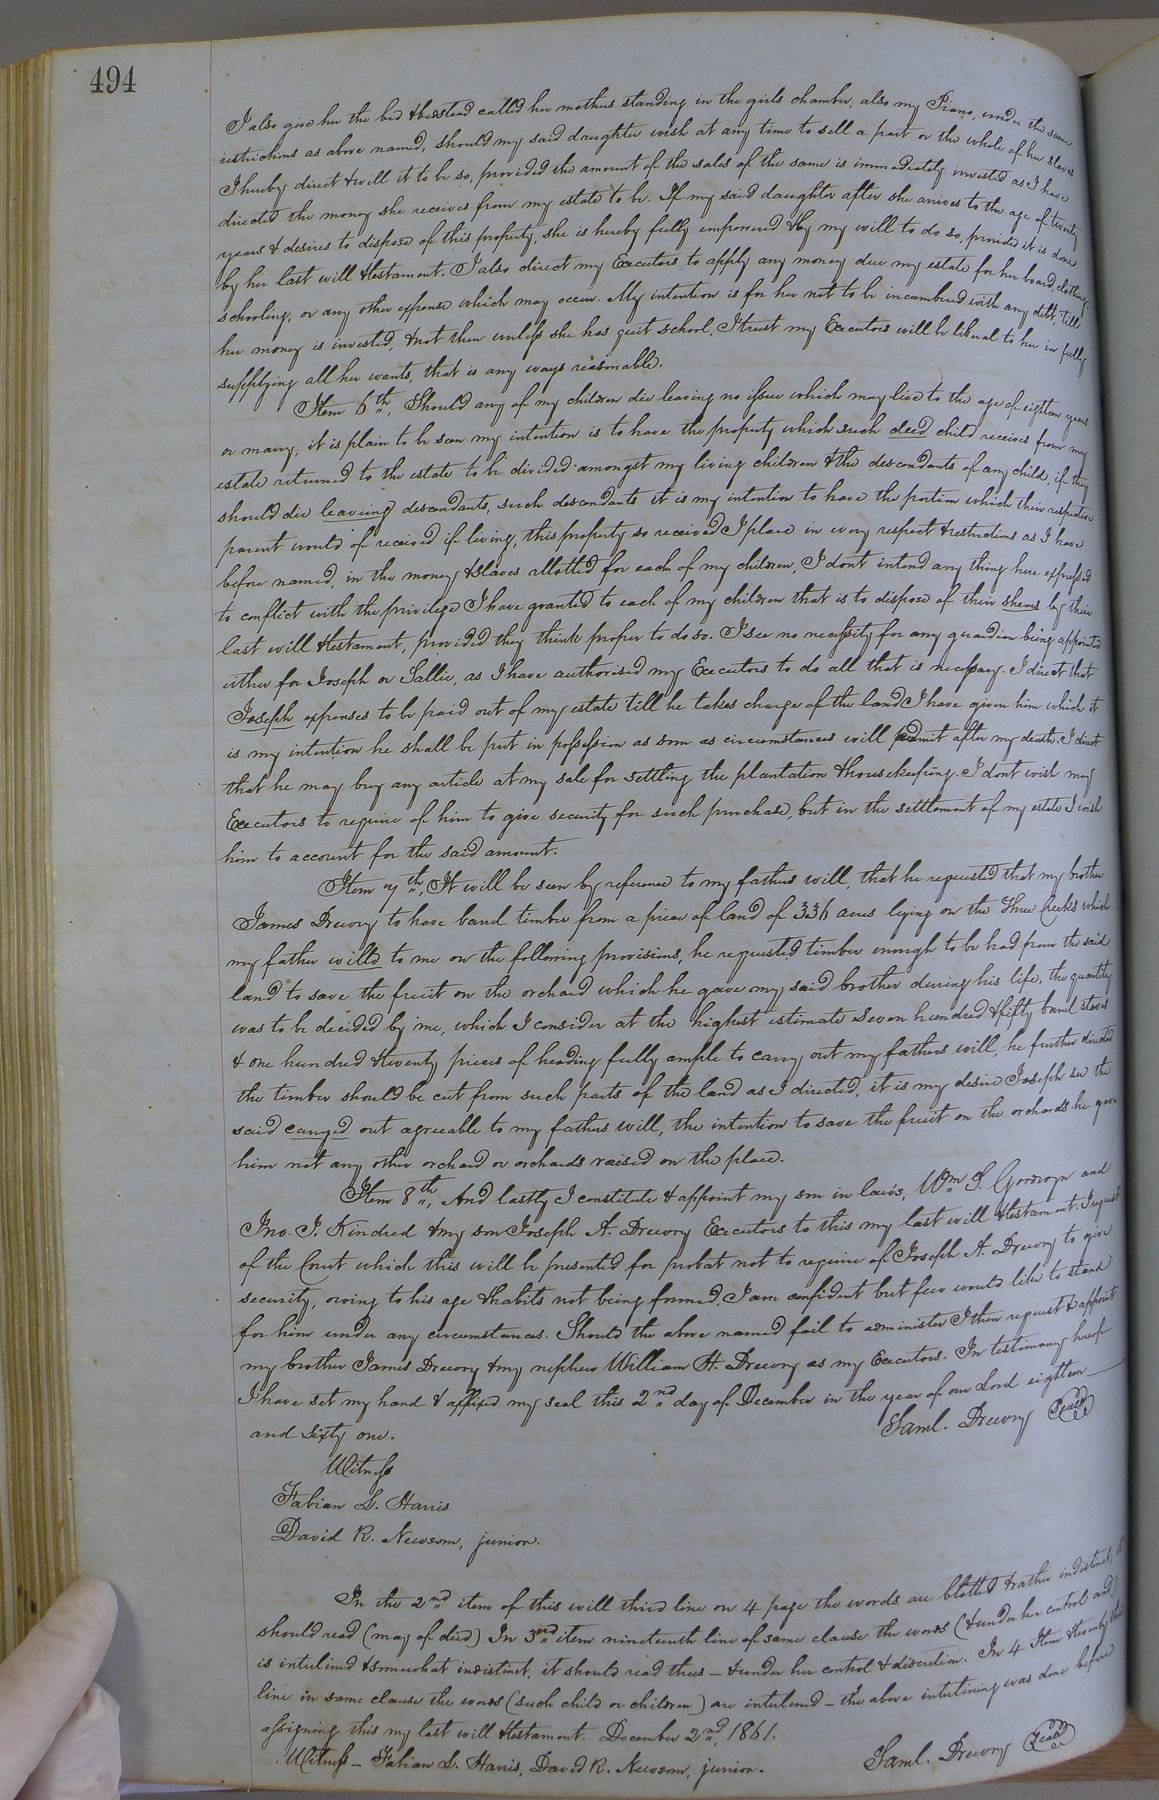 494
I also give her the bed & bedstead called her mothers standing in the girls chamber, also my Piano, under the same
restrictions as above named, should my said daughter wish at any time to sell a part or the whole of her slaves
I hereby direct & will it to be so, provided the amount of the sales of the same is immediately invested as I have
directed the money she receives from my estate to be. If my said daughter after she arrives to the age of twenty
years & desires to dispose of this property, she is hereby fully empowered & by my will to do so, provided it is done
by her last will & testament. I also direct my Executors to apply any money due my estate for her board, clothing,
schooling, or any other expense which may occur. My intention is for her not to be incumbered with any debt, till
her money is invested, & not then unless she has quit school, I trust my Executors will be liberal to her in fully
supplying all her wants, that is any ways reasonable.
Item 6th, Should any of my children die leaving no issue which may live to the age of eighteen years
or marry, it is plain to be seen my intention is to have the property which such deed child receives from my
estate returned to the estate to be divided amongst my living children & the descendants of any child, if they
should die leaveing descendants, such descendants it is my intention to have the portion which their respective
parent would of received if living, this property so received I place in every respect & restrictions as I have
before named, in the money & slaves allotted for each of my children, I dont intend any thing here expressed
to conflict with the privilege I have granted to each of my children that is to dispose of their shears by their
last will & testament, provided they think proper to do so. I see no necessity for any guardian being appointed
either for Joseph or Sallie, as I have authorised my Executors to do all that is necessary. I direct that
Joseph expenses to be paid out of my estate till he takes charge of the land I have given him which it
is my intention he shall be put in possession as soon as circumstances will admit after my death. I direct
that he may buy any article at my sale for settling the plantation & housekeeping. I dont wish my
Executors to require of him to give security for such purchase, but in the settlement of my estate I wish
him to account for the said amount.
Item 7th, It will be seen by reference to my fathers will, that he requested that my brother
James Drewry to have barrel timber from a piece of land of 336 acres lying on the Three Creeks which
my father willd to me on the following provisions, he requested timber enough to be had from the said
land to save the fruit on the orchard which he gave my said brother during his life, the quantity
was to be decided by me, which I consider at the highest estimate seven hundred & fifty barrel staves
& one hundred & twenty pieces of heading fully ample to carry out my fathers will, he further directed
the timber should be cut from such parts of the land as I directed, it is my desire Joseph see the
said carryed out agreeable to my fathers will, the intention to save the fruit on the orchards he gave
him not any other orchard or orchards raised on the place.
Item 8th, And lastly I constitute & appoint my son in laws, Wm S. Goodwyn and
Jno. J. Kindred & my son Joseph A. Drewry Executors to this my last will & testament. I request
of the Court which this will be presented for probat not to require of Joseph A. Drewry to give
security, owing to his age & habits not being formed, I am confident but few would like to stand
for him under any circumstances. Should the above named fail to administer I then request & appoint
my brother James Drewry & my nephew William H. Drewry as my Executors. In testimony hereof
I have set my hand & affixed my seal this 2nd day of December in the year of our Lord eighteen
and sixty one. Saml. Drewry Seal
Witness
Fabian L. Harris
David R. Newsom, junior.
In the 2nd item of this will third line on 4 page the words are blotted & rather indistinct, it
should read (may of died) In 3rd item nineteenth line of same clause the words (& under her control and)
is interlined & somewhat indistinct, it should read thus - & under her control & discretion. In 4 Item & twenty
line in same clause the words (such child or children) are interlined - the above interlining was done before
assigning this my last will & testament. December 2nd, 1861.
Witness - Fabian L. Harris, David R. Newsom, junior. Saml. Drewry Seal